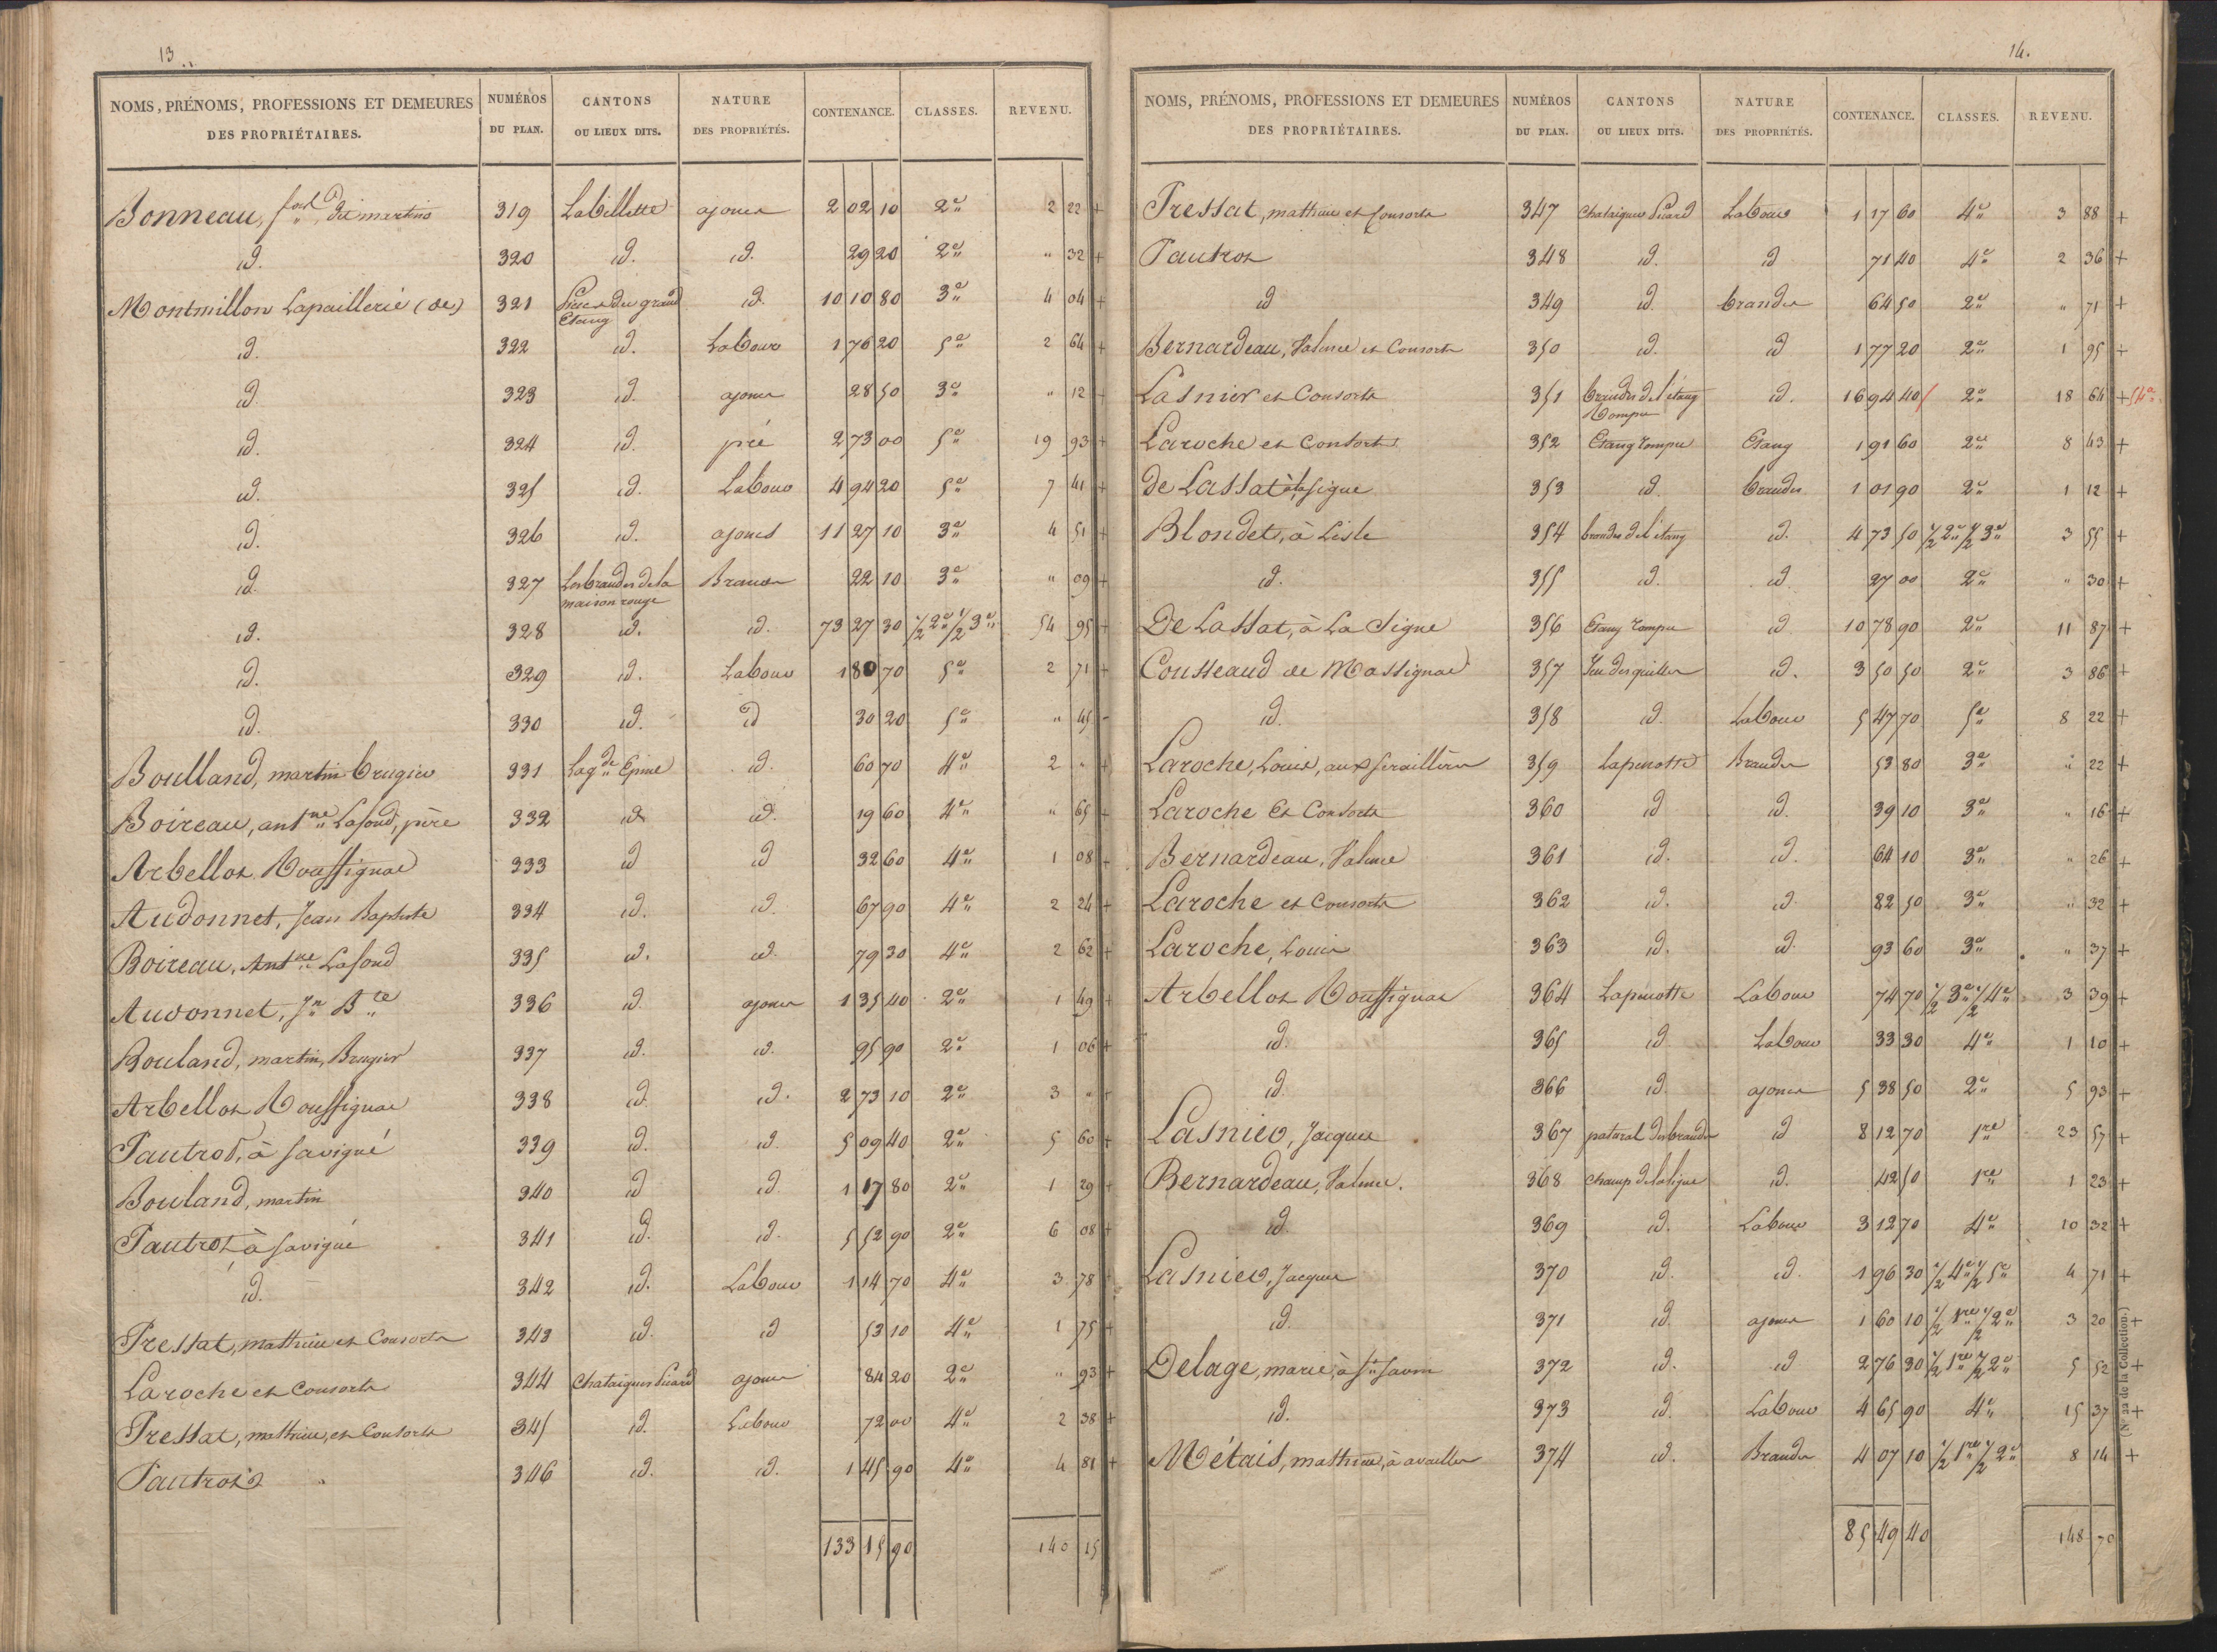 13
NOMS, PRÉNOMS, PROFESSIONS ET DEMEURES DES PROPRIÉTAIRES. NUMÉROS DU PLAN. CANTONS OU LIEUX DITS. NATURE DES PROPRIÉTÉS. CONTENANCE. CLASSES. REVENU.
Bonneau, dit martin 319 Labillette ajoncs 2 02 10 2e 2 22 +
id. 320 id. id. 29 20 2e " 32 +
Montmillon Lapaillerie (de) 321 du grand Etang id. 10 10 80 3e 4 04 +
id. 322 id. Labour 1 76 20 5e 2 64 +
id. 323 id. ajoncs 28 50 3e " 12 +
id. 324 id. pré 2 73 00 5e 19 93 +
id. 325 id. Labour 4 94 20 5e 7 41 +
id. 326 id. ajoncs 11 27 10 3e 4 51 +
id. 327 Les brandes de la maison rouge Brandes 22 10 3e " 09 +
id. 328 id. id. 73 27 30 1/2 2e 1/2 3e 54 95 +
id. 329 id. Labour 1 80 70 5e 2 71 +
id. 330 id. id 30 20 5e " 45 -
Boulland, martin brugier 331 Lagde Epine id. 60 70 4e 2 " +
Boireau, antne Lafond, père 332 id. id. 19 60 4e " 65 +
Arbellot Rouffignac 333 id id 32 60 4e 1 08 +
Audonnet, Jean Baptiste 334 id. id. 67 90 4e 2 24 +
Boireau, Antne Lafond 335 id. id. 79 30 4e 2 62 +
Audonnet, Jn Bte 336 id. ajoncs 1 35 40 2e 1 49 +
Bouland, martin, Brugier 337 id. id. 95 90 2e 1 06 +
Arbellot Rouffignac 338 id. id. 2 73 10 2e 3 " +
Pautrot, à Savigné 339 id. id. 5 09 40 2e 5 60 +
Bouland, martin 340 id id 1 17 80 2e 1 29 +
Pautrot à Savigné 341 id. id. 5 52 90 2e 6 08 +
id. 342 id. Labour 1 14 70 4e 3 78 +
Pressat, mathieu et Consorts 343 id. id 53 10 4e 1 75 +
Laroche et Consorts 344 Chataigniers Picard ajoncs 84 20 2e " 93 +
Pressat, mathieu, et Consorts 345 id. Labour 72 00 4e 2 38 +
Pautrot 346 id. id. 1 45 90 4e 4 81 +
133 15 90 140 15
14.
NOMS, PRÉNOMS, PROFESSIONS ET DEMEURES DES PROPRIÉTAIRES. NUMÉROS DU PLAN. CANTONS OU LIEUX DITS. NATURE DES PROPRIÉTÉS. CONTENANCE. CLASSES. REVENU.
Pressat, mathieu et Consorts 347 Chataigniers Picard Labour 1 17 60 4e 3 88 +
Pautrot 348 id. id 71 40 4e 2 36 +
id 349 id. brandes 64 50 2e " 71 +
Bernardeau, Valence et Consorts 350 id. id 1 77 20 2e 1 95 +
Lasnier et Consorts 351 brandes de l'étang Rompu id. 16 94 40 2e 18 64 +
Laroche et Consorts 352 Etang rompu Etang 1 91 60 2e 8 43 +
de Lassat à la signe 353 id brandes 1 01 90 2e 1 12 +
Blondet, à Lisle 354 brandes de l'étang id. 4 73 50 1/2 2e 1/2 3e 3 55 +
id. 355 id. id. 27 00 2e " 30 +
De Lassat, à La Signe 356 Etang rompu id 10 78 90 2e 11 87 +
Cousseaud de Massignac 357 Jeu des quilles id. 3 50 50 2e 3 86 +
id. 358 id Labour 5 47 70 5e 8 22 +
Laroche, Louis, aux 359 Laperotte Brandes 53 80 3e " 22 +
Laroche Et Consorts 360 id id. 39 10 3e " 16 +
Bernardeau, Valence 361 id. id. 64 10 3e " 26 +
Laroche et Consorts 362 id. id. 82 50 3e " 32 +
Laroche, Louis 363 id. id. 93 60 3e " 37 +
Arbellot Rouffignac 364 Laperotte Labour 74 70 1/2 3e 1/2 4e 3 39 +
id. 365 id Labour 33 30 4e 1 10 +
id 366 id. ajoncs 5 38 50 2e 5 93 +
Lasnier, Jacques 367 patural des brandes id 8 12 70 1re 23 57 +
Bernardeau, Valence. 368 Champ de la ligne id. 42 50 1re 1 23 +
id. 369 id. Labour 3 12 70 4e 10 32 +
Lasnier, Jacques 370 id. id. 1 96 30 1/2 4e 1/2 5e 4 71 +
id. 371 id. ajoncs 1 60 10 1/2 1re 1/2 2e 3 20 +
Delage, marie, à St Savin 372 id. id 2 76 30 1/2 1re 1/2 2e 5 52 +
id. 373 id. Labour 4 65 90 4e 15 37 +
Métais, mathieu, à availles 374 id. Brandes 4 07 10 1/2 1re 1/2 2e 8 14 +
85 49 40 148 70
(N° 22 de la Collection.)